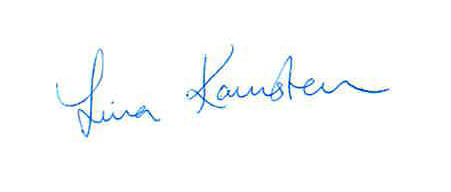 Lina Kamsteen